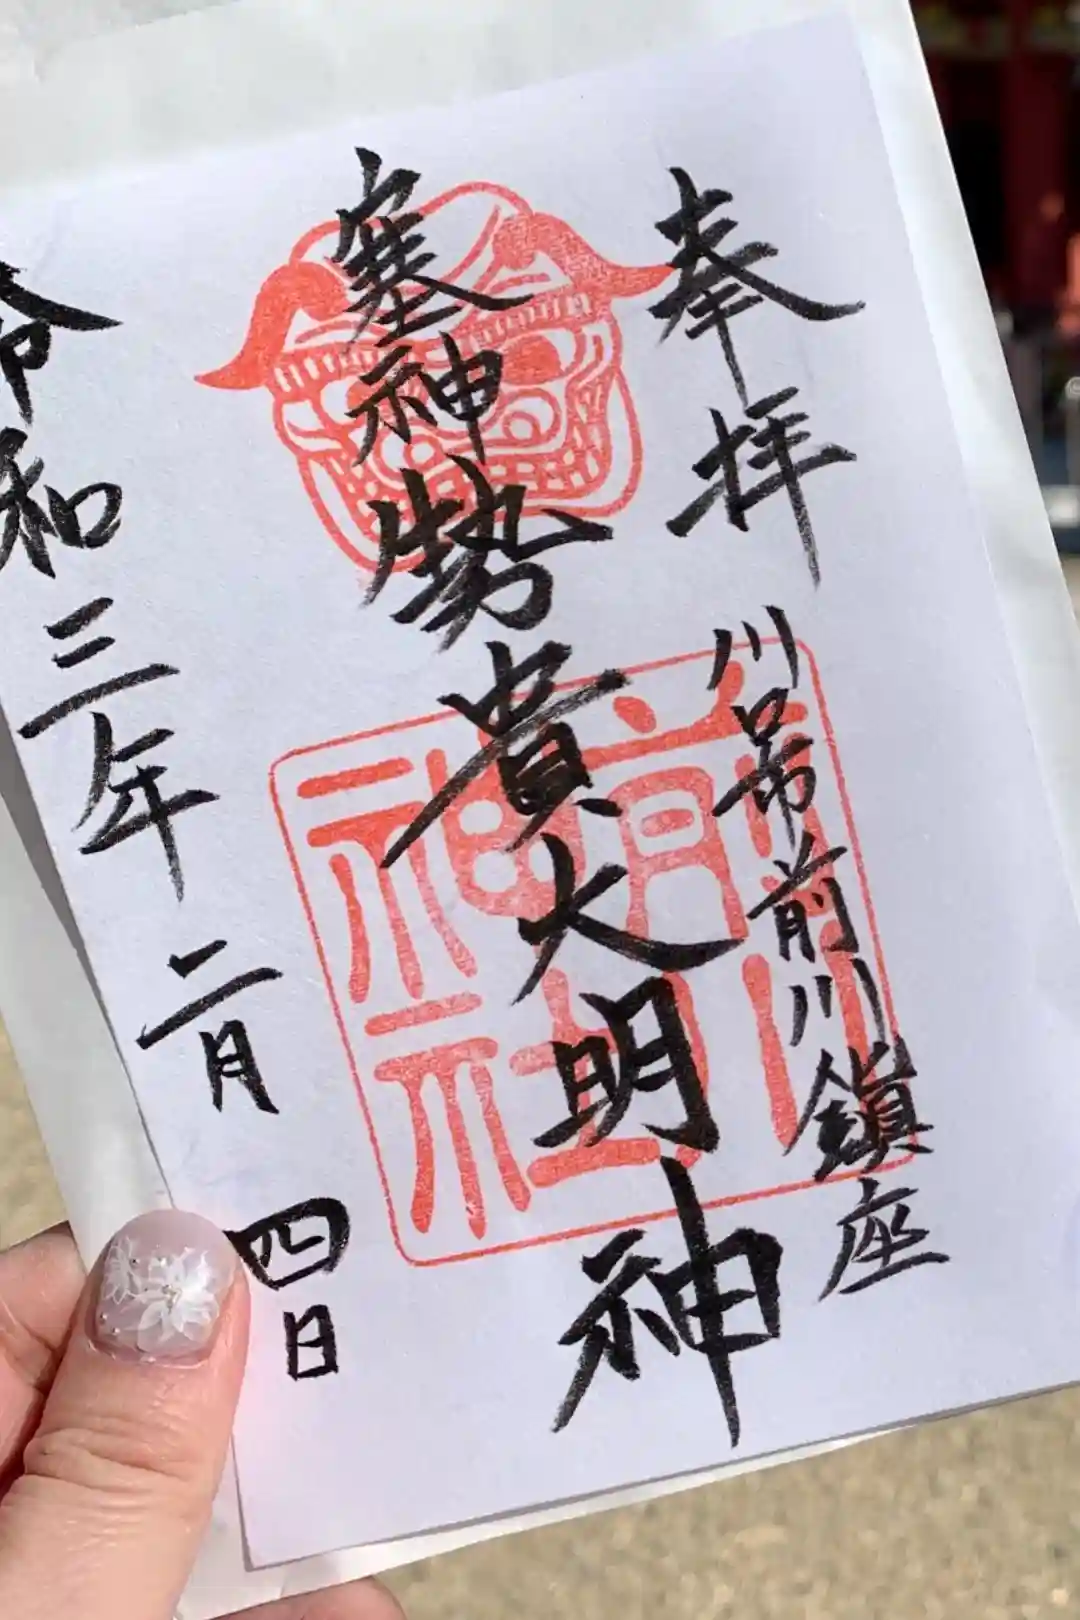 奉拝
川口市前川鎮座
塞神勢貴大明神
令和三年二月四日
前川
神社